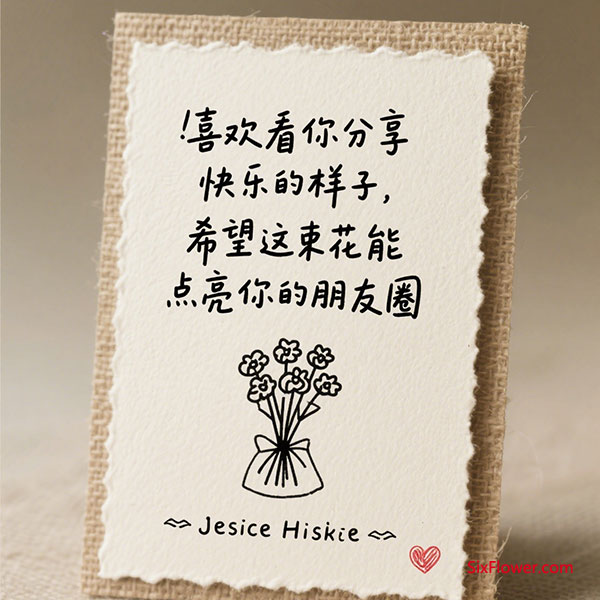 !喜欢看你分享
快乐的样子,
希望这束花能
点亮你的朋友圈
Jesice Hiskie
SixFlower.com